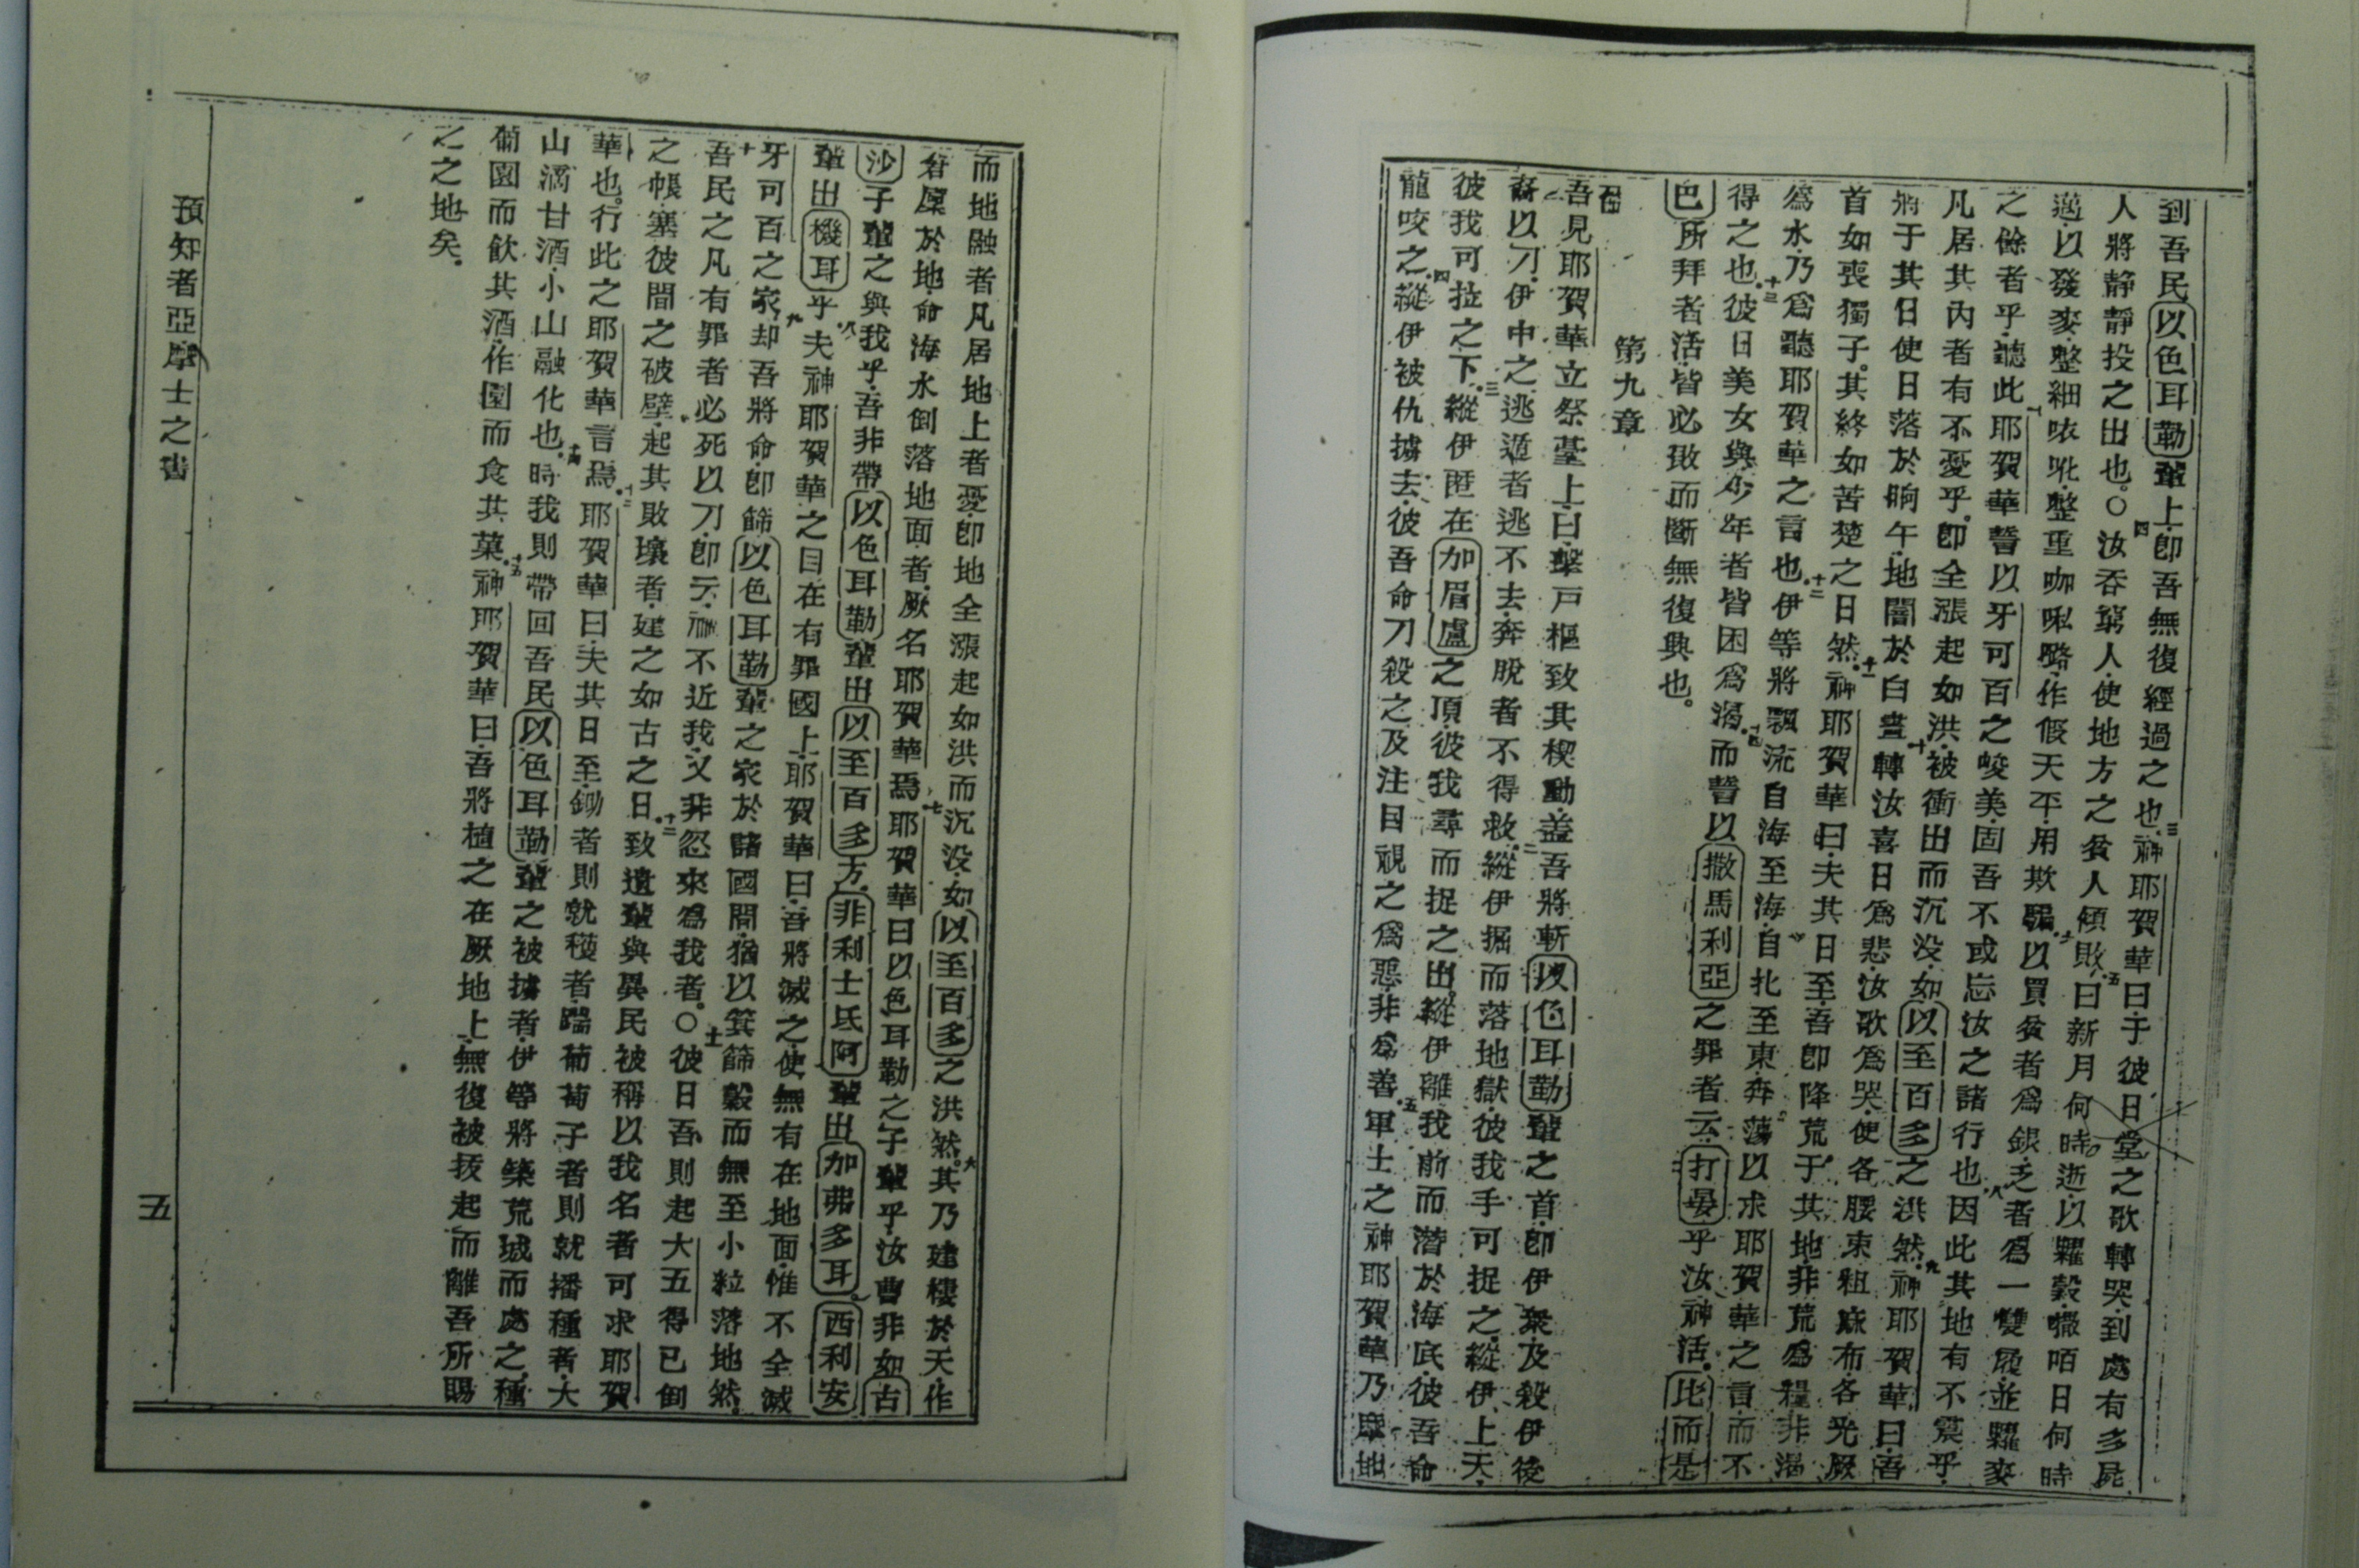 到吾民以色耳勒輩上卽吾無復經過之也三神耶賀華曰于彼日堂之歌轉哭到處有多屍
人將靜靜投之出也○四汝吞窮人使地方之貧人傾敗五曰新月何時逝以糶穀嗽咟日何時
邁以發麥整細𠵽吪整重咖𠵽路作假天平用欺騙六以買貧者爲銀乏者爲一雙屐並糶麥
之餘者乎聽此七耶賀華誓以牙可百之峻美固吾不或忘汝之諸行也八因此其地有不震乎
凡居其內者有不憂乎卽全漲起如洪被衝出而沉没如以至百多之洪然九神耶賀華曰吾
將于其日使日落於晌午地闇於白晝十轉汝喜日爲悲汝歌爲哭使各腰束粗麻布各光厥
首如喪獨子其終如苦楚之日然十一神耶賀華曰夫其日至吾卽降荒于其地非荒爲糧非渴
爲水乃爲聽耶賀華之言也十二伊等將飄流自海至海自北至東奔蕩以求耶賀華之言而不
得之也十三彼日美女與少年者皆困爲渴十四而誓以撒馬利亞之罪者云打晏乎汝神活比而是
巴所拜者活皆必敗而斷無復興也
第九章
吾見耶賀華立祭臺上曰擊戸樞致其楔動盖吾將斬以色耳勒輩之首卽伊衆及殺伊後
裔以刀伊中之逃遁者逃不去奔脫者不得救二縱伊掘而落地獄彼我手可捉之縱伊上天
彼我可拉之下三縱伊匿在加眉盧之頂彼我尋而捉之出縱伊離我前而潛於海底彼吾命
龍咬之四縱伊被仇擄去彼吾命刀殺之及注目視之爲惡非爲善五軍士之神耶賀華乃摩地
而地融者凡居地上者憂卽地全漲起如洪而沉没如以至百多之洪然六其乃建樓於天作
窘屋於地命海水倒落地面者厥名耶賀華焉七耶賀華曰以色耳勒之子輩乎汝曹非如古
沙子輩之與我乎吾非帶以色耳勒輩出以至百多方非利士氐阿輩出加弗多耳西利安
輩出機耳乎八夫神耶賀華之目在有罪國上耶賀華曰吾將滅之使無有在地面惟不全滅
牙可百之家九却吾將命卽篩以色耳勒輩之家於諸國間猶以箕篩穀而無至小粒落地然
十吾民之凡有罪者必死以刀卽云禍不近我又非忽來爲我者○十一彼日吾則起大五得已倒
之帳塞彼間之破壁起其敗壞者建之如古之日十二致遺輩與異民被稱以我名者可求耶賀
華也行此之耶賀華言焉十三耶賀華曰夫其日至鋤者則就穫者踹葡萄子者則就播種者大
山滴甘酒小山融化也十四時我則帶回吾民以色耳勒輩之被擄者伊等將築荒城而處之種
葡園而飲其酒作園而食其菓十五神耶賀華曰吾將植之在厥地上無復被拔起而離吾所賜
之之地矣
預知者亞摩士之書
五